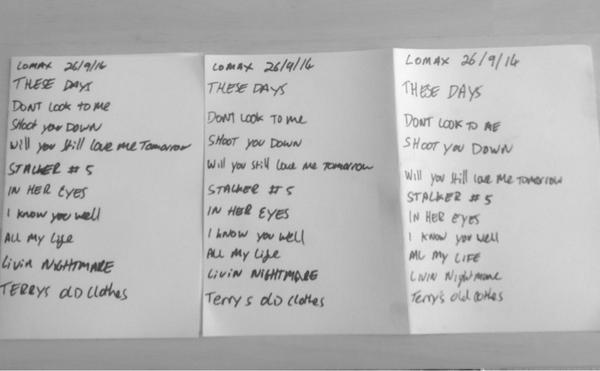 LOMAX 26/9/14
THESE DAYS
DONT LOOK to Me
SHOOT you DOWN
Will you Still love me Tomorrow
STALKER # 5
IN HER EYES
I know you well
ALL My Life
LIVIN NIGHTMARE
TERRYS OLD Clothes
LOMAX 26/9/14
THESE DAYS
DONT LOOK to me
SHOOT you DOWN
Will you Still love Me Tomorrow
STALKER # 5
IN HER EYES
I know you well
ALL My Life
LIVIN NIGHTMARE
Terry's OLD Clothes
LOMAX 26/9/14
THESE DAYS
DONT LOOK TO ME
SHOOT you DOWN
Will you Still love Me Tomorrow
STALKER # 5
IN HER EYES
I know you well
ALL My LIFE
LIVIN Nightmare
Terry's old clothes